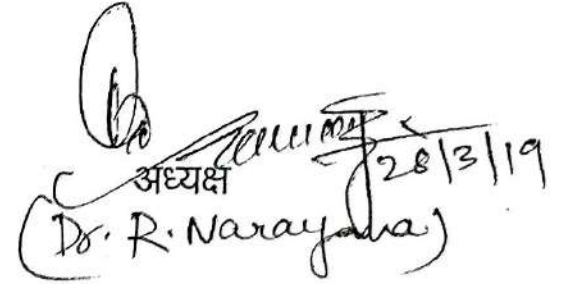 28/3/19
अध्यक्ष
(Dr. R. Narayana)